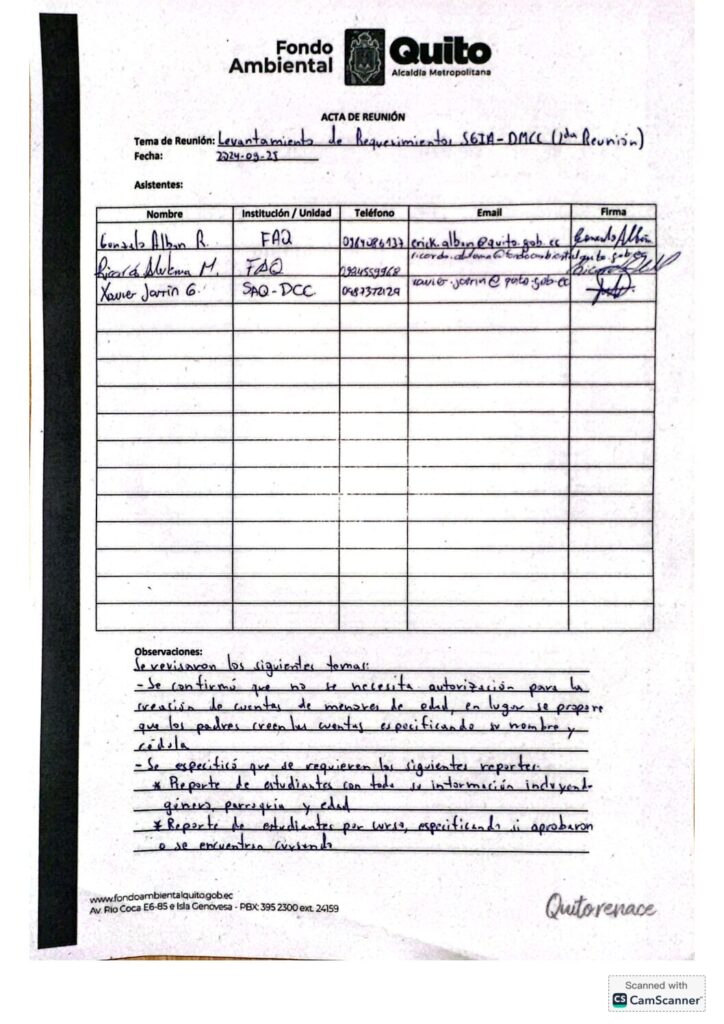 Fondo Ambiental
Quito
Alcaldía Metropolitana
ACTA DE REUNIÓN
Tema de Reunión: Levantamiento de Requerimientos SGIA-DMCC (1da Reunión)
Fecha: 2024-09-25
Asistentes:
Nombre Institución / Unidad Teléfono Email Firma
Gonzalo Alban R. FAQ erick.alban@quito.gob.ec Gonzalo Albán
Ricardo M. FAQ
Xavier Jarrín G. SAQ-DCC 0987372129 xavier.jarrin@quito.gob.ec
Observaciones:
Se revisaron los siguientes temas:
- Se confirmó que no se necesita autorización para la
creación de cuentas de menores de edad, en lugar se propone
que los padres creen las cuentas especificando su nombre y
cédula
- Se especificó que se requieren los siguientes reportes:
* Reporte de estudiantes con toda su información incluyendo
género, parroquia y edad
* Reporte de estudiantes por curso, especificando si aprobaron
o se encuentran cursando
www.fondoambientalquito.gob.ec
Av. Río Coca E6-85 e Isla Genovesa - PBX: 395 2300 ext. 24159
Quito renace
Scanned with
CS CamScanner